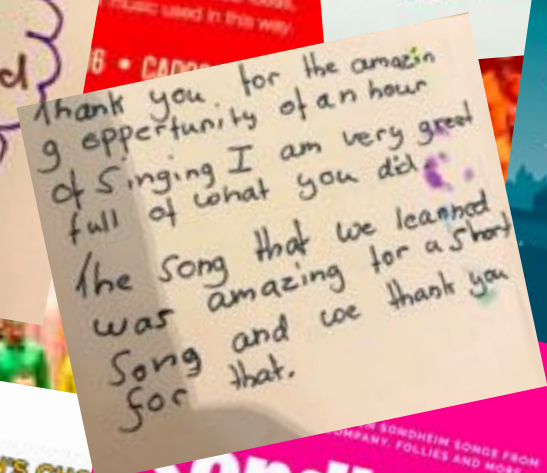 music used in this way.
d
6 • CAD
Thank you for the amazin
g oppertunity of an hour
of singing I am very greet
full of what you did
The song that we leanned
was amazing for a short
song and we thank you
for that.
SONDHEIM SONGS FROM
COMPANY, FOLLIES AND MORE